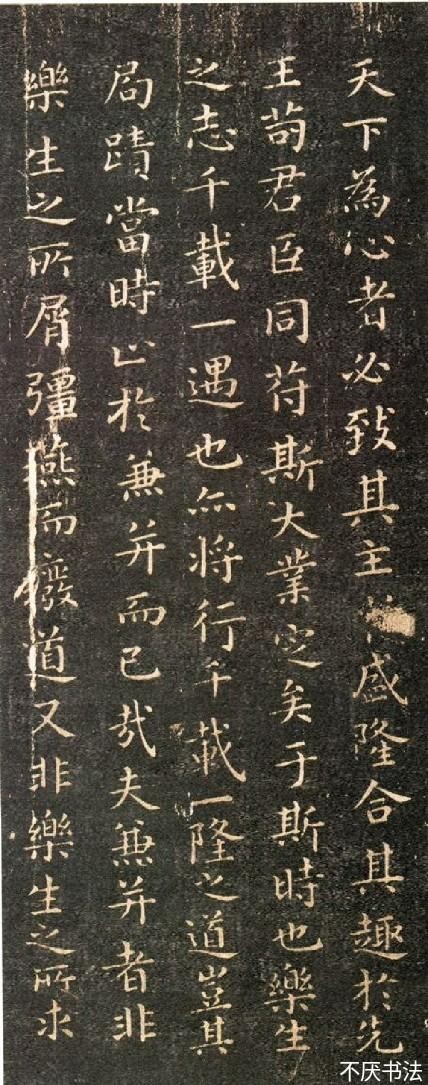 天下為心者必致其主於盛隆合其趣於先
王苟君臣同苻斯大業定矣于斯時也樂生
之志千載一遇也亦將行千載一隆之道豈其
局蹟當時止於兼并而已哉夫兼并者非
樂生之所屑彊燕而廢道又非樂生之所求
不厌书法